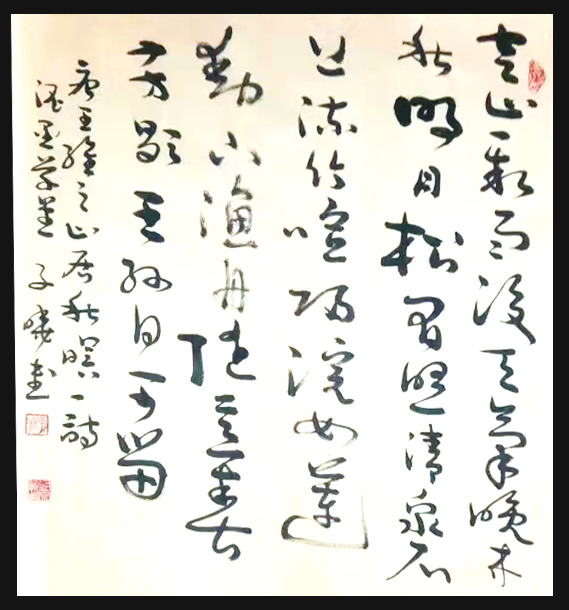 空山新雨後天氣晚来
秋明月松間照清泉石
上流竹喧歸浣女蓮
動下漁舟隨意春
芳歇王孫自可留
唐王維之山居秋暝一詩
墨 子 書